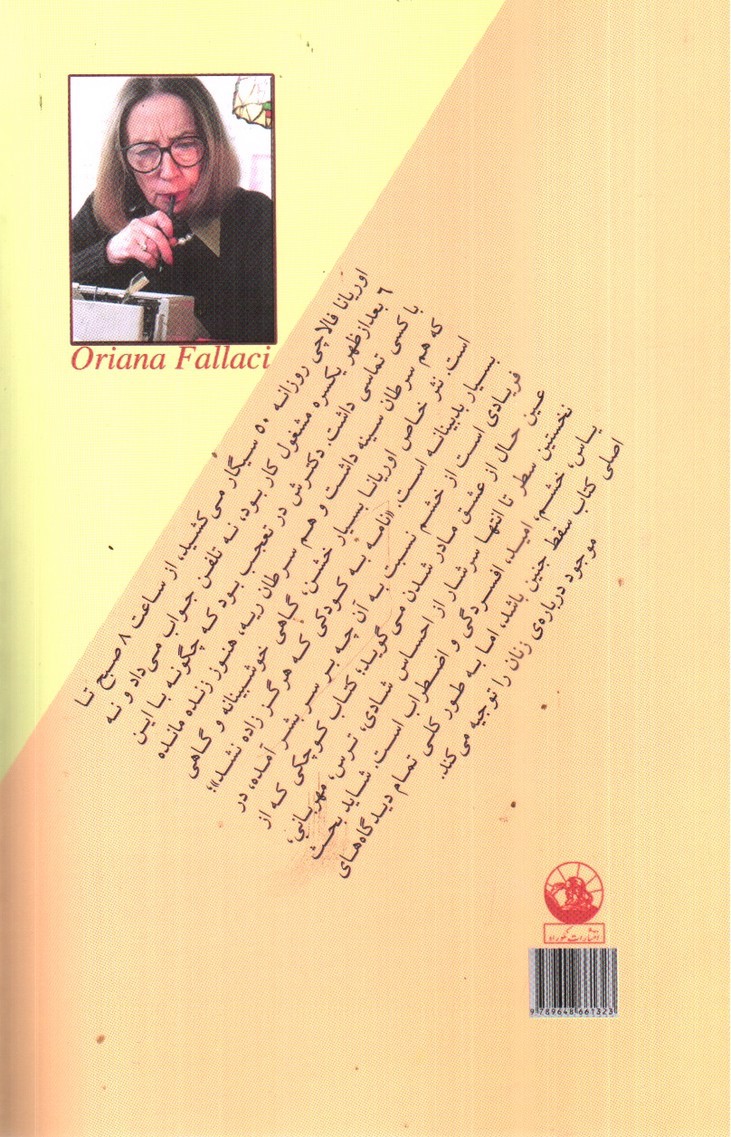 Oriana Fallaci
اوریانا فالاچی روزانه ۵۰ سیگار می‌کشید، از ساعت ۸ صبح تا
۶ بعدازظهر یکسره مشغول کار بود، نه تلفن جواب می‌داد و نه
با کسی تماسی داشت. دکترش در تعجب بود که چگونه با این
که هم سرطان سینه داشت و هم سرطان ریه، هنوز زنده مانده
است. نثر خاص اوریانا بسیار خشن، گاهی خوشبینانه و گاهی
بسیار بدبینانه است. «نامه به کودکی که هرگز زاده نشد»؛
فریادی است از خشم نسبت به آن چه بر سر بشر آمده، در
عین حال از عشق مادر شدن می‌گوید؛ کتاب کوچکی که از
نخستین سطر تا انتها سرشار از احساس شادی، ترس، مهربانی،
یاس، خشم، امید، افسردگی و اضطراب است. شاید بحث
اصلی کتاب سقط جنین باشد، اما به طور کلی تمام دیدگاه‌های
موجود درباره‌ی زنان را توجیه می‌کند.
انتشارات
9 789648 661323